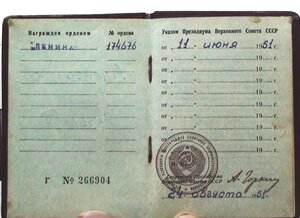 Награжден орденом № ордена
"Ленина" 174676
Г № 266904
Указом Президиума Верховного Совета СССР
от 11 июня 1951 г.
от " " 19 г.
от " " 19 г.
от " " 19 г.
от " " 19 г.
от " " 19 г.
от " " 19 г.
от " " 19 г.
Секретарь Президиума
Верховного Совета СССР
А. Горкин
" 24 " августа 1951 г.